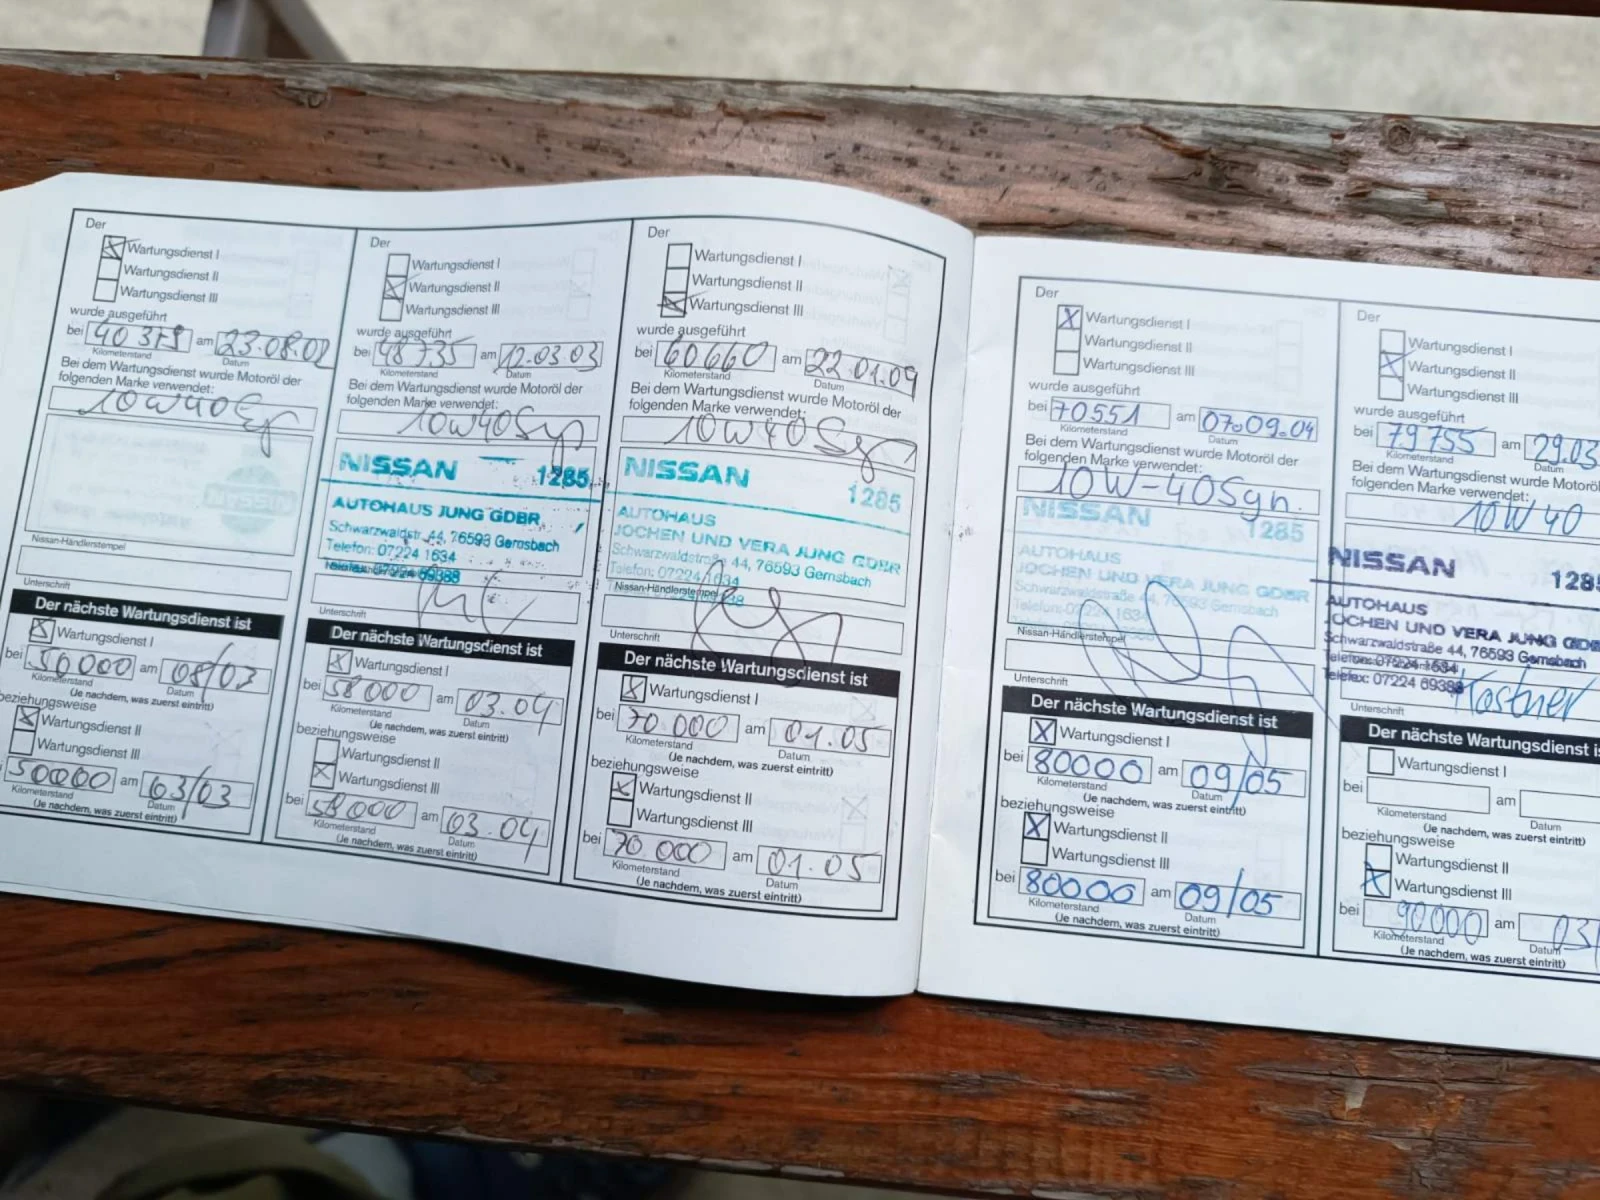 Der
Wartungsdienst I
Wartungsdienst II
Wartungsdienst III
wurde ausgeführt
bei 40379 am 23.08.02
Kilometerstand Datum
Bei dem Wartungsdienst wurde Motoröl der
folgenden Marke verwendet:
10W40
NISSAN
Nissan-Händlerstempel
Unterschrift
Der nächste Wartungsdienst ist
Wartungsdienst I
bei 50000 am 08/03
Kilometerstand Datum
(Je nachdem, was zuerst eintritt)
beziehungsweise
Wartungsdienst II
Wartungsdienst III
50000 am 03/03
Kilometerstand Datum
(Je nachdem, was zuerst eintritt)
Der
Wartungsdienst I
Wartungsdienst II
Wartungsdienst III
wurde ausgeführt
bei 48735 am 12.03.03
Kilometerstand Datum
Bei dem Wartungsdienst wurde Motoröl der
folgenden Marke verwendet:
10W40Syn
NISSAN 1285
AUTOHAUS JUNG GDBR
Schwarzwaldstr. 44, 76593 Gernsbach
Telefon: 07224 1634
Telefax: 07224 69388
Unterschrift
Der nächste Wartungsdienst ist
Wartungsdienst I
bei 58000 am 03.04
Kilometerstand Datum
(Je nachdem, was zuerst eintritt)
beziehungsweise
Wartungsdienst II
Wartungsdienst III
bei 58000 am 03.04
Kilometerstand Datum
(Je nachdem, was zuerst eintritt)
Der
Wartungsdienst I
Wartungsdienst II
Wartungsdienst III
wurde ausgeführt
bei 60660 am 22.01.04
Kilometerstand Datum
Bei dem Wartungsdienst wurde Motoröl der
folgenden Marke verwendet:
10W40Syn
NISSAN 1285
AUTOHAUS
JOCHEN UND VERA JUNG GDBR
Schwarzwaldstraße 44, 76593 Gernsbach
Telefon: 07224 1634
Nissan-Händlerstempel
Unterschrift
Der nächste Wartungsdienst ist
Wartungsdienst I
bei 70.000 am 01.05
Kilometerstand Datum
(Je nachdem, was zuerst eintritt)
beziehungsweise
Wartungsdienst II
Wartungsdienst III
bei 70.000 am 01.05
Kilometerstand Datum
(Je nachdem, was zuerst eintritt)
Der
Wartungsdienst I
Wartungsdienst II
Wartungsdienst III
wurde ausgeführt
bei 70551 am 07.09.04
Kilometerstand Datum
Bei dem Wartungsdienst wurde Motoröl der
folgenden Marke verwendet:
10W-40Syn.
NISSAN 1285
AUTOHAUS
JOCHEN UND VERA JUNG GDBR
Schwarzwaldstraße 44, 76593 Gernsbach
Telefon: 07224 1634
Nissan-Händlerstempel
Unterschrift
Der nächste Wartungsdienst ist
Wartungsdienst I
bei 80000 am 09/05
Kilometerstand Datum
(Je nachdem, was zuerst eintritt)
beziehungsweise
Wartungsdienst II
Wartungsdienst III
bei 80000 am 09/05
Kilometerstand Datum
(Je nachdem, was zuerst eintritt)
Der
Wartungsdienst I
Wartungsdienst II
Wartungsdienst III
wurde ausgeführt
bei 79755 am 29.03
Kilometerstand Datum
Bei dem Wartungsdienst wurde Motoröl
folgenden Marke verwendet:
10W40
NISSAN 1285
AUTOHAUS
JOCHEN UND VERA JUNG GDBR
Schwarzwaldstraße 44, 76593 Gernsbach
Telefon: 07224 1634
Telefax: 07224 69388
Unterschrift
Der nächste Wartungsdienst
Wartungsdienst I
bei am
Kilometerstand Datum
(Je nachdem, was zuerst eintritt)
beziehungsweise
Wartungsdienst II
Wartungsdienst III
bei 90000 am 03/
Kilometerstand Datum
(Je nachdem, was zuerst eintritt)